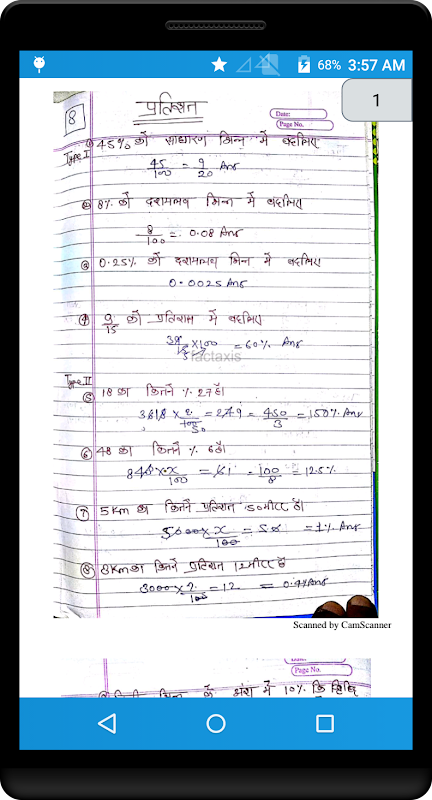 68% 3:57 AM
1
8
प्रतिशत
Date:
Page No.
Type I
① 45% को साधारण भिन्न में बदलिए
45/100 = 9/20 Ans
② 8% को दशमलव भिन्न में बदलिए
8/100 = 0.08 Ans
③ 0.25% को दशमलव भिन्न में बदलिए
0.0025 Ans
④ 9/15 को प्रतिशत में बदलिए
×100 = 60% Ans
factaxis
Type II
⑤ 18 का कितने % 27 है।
= 450/3 = 150% Ans
⑥ 48 का कितने % 6 है।
= 100/8 = 12.5%
⑦ 5 Km का कितने प्रतिशत 50 मीटर है।
5000 × x/100 = 50 = 1% Ans
⑧ 3 Km का कितने प्रतिशत 12 मीटर है
3000 × x/100 = 12 = 0.4% Ans
Scanned by CamScanner
Page No.
में 10% कि